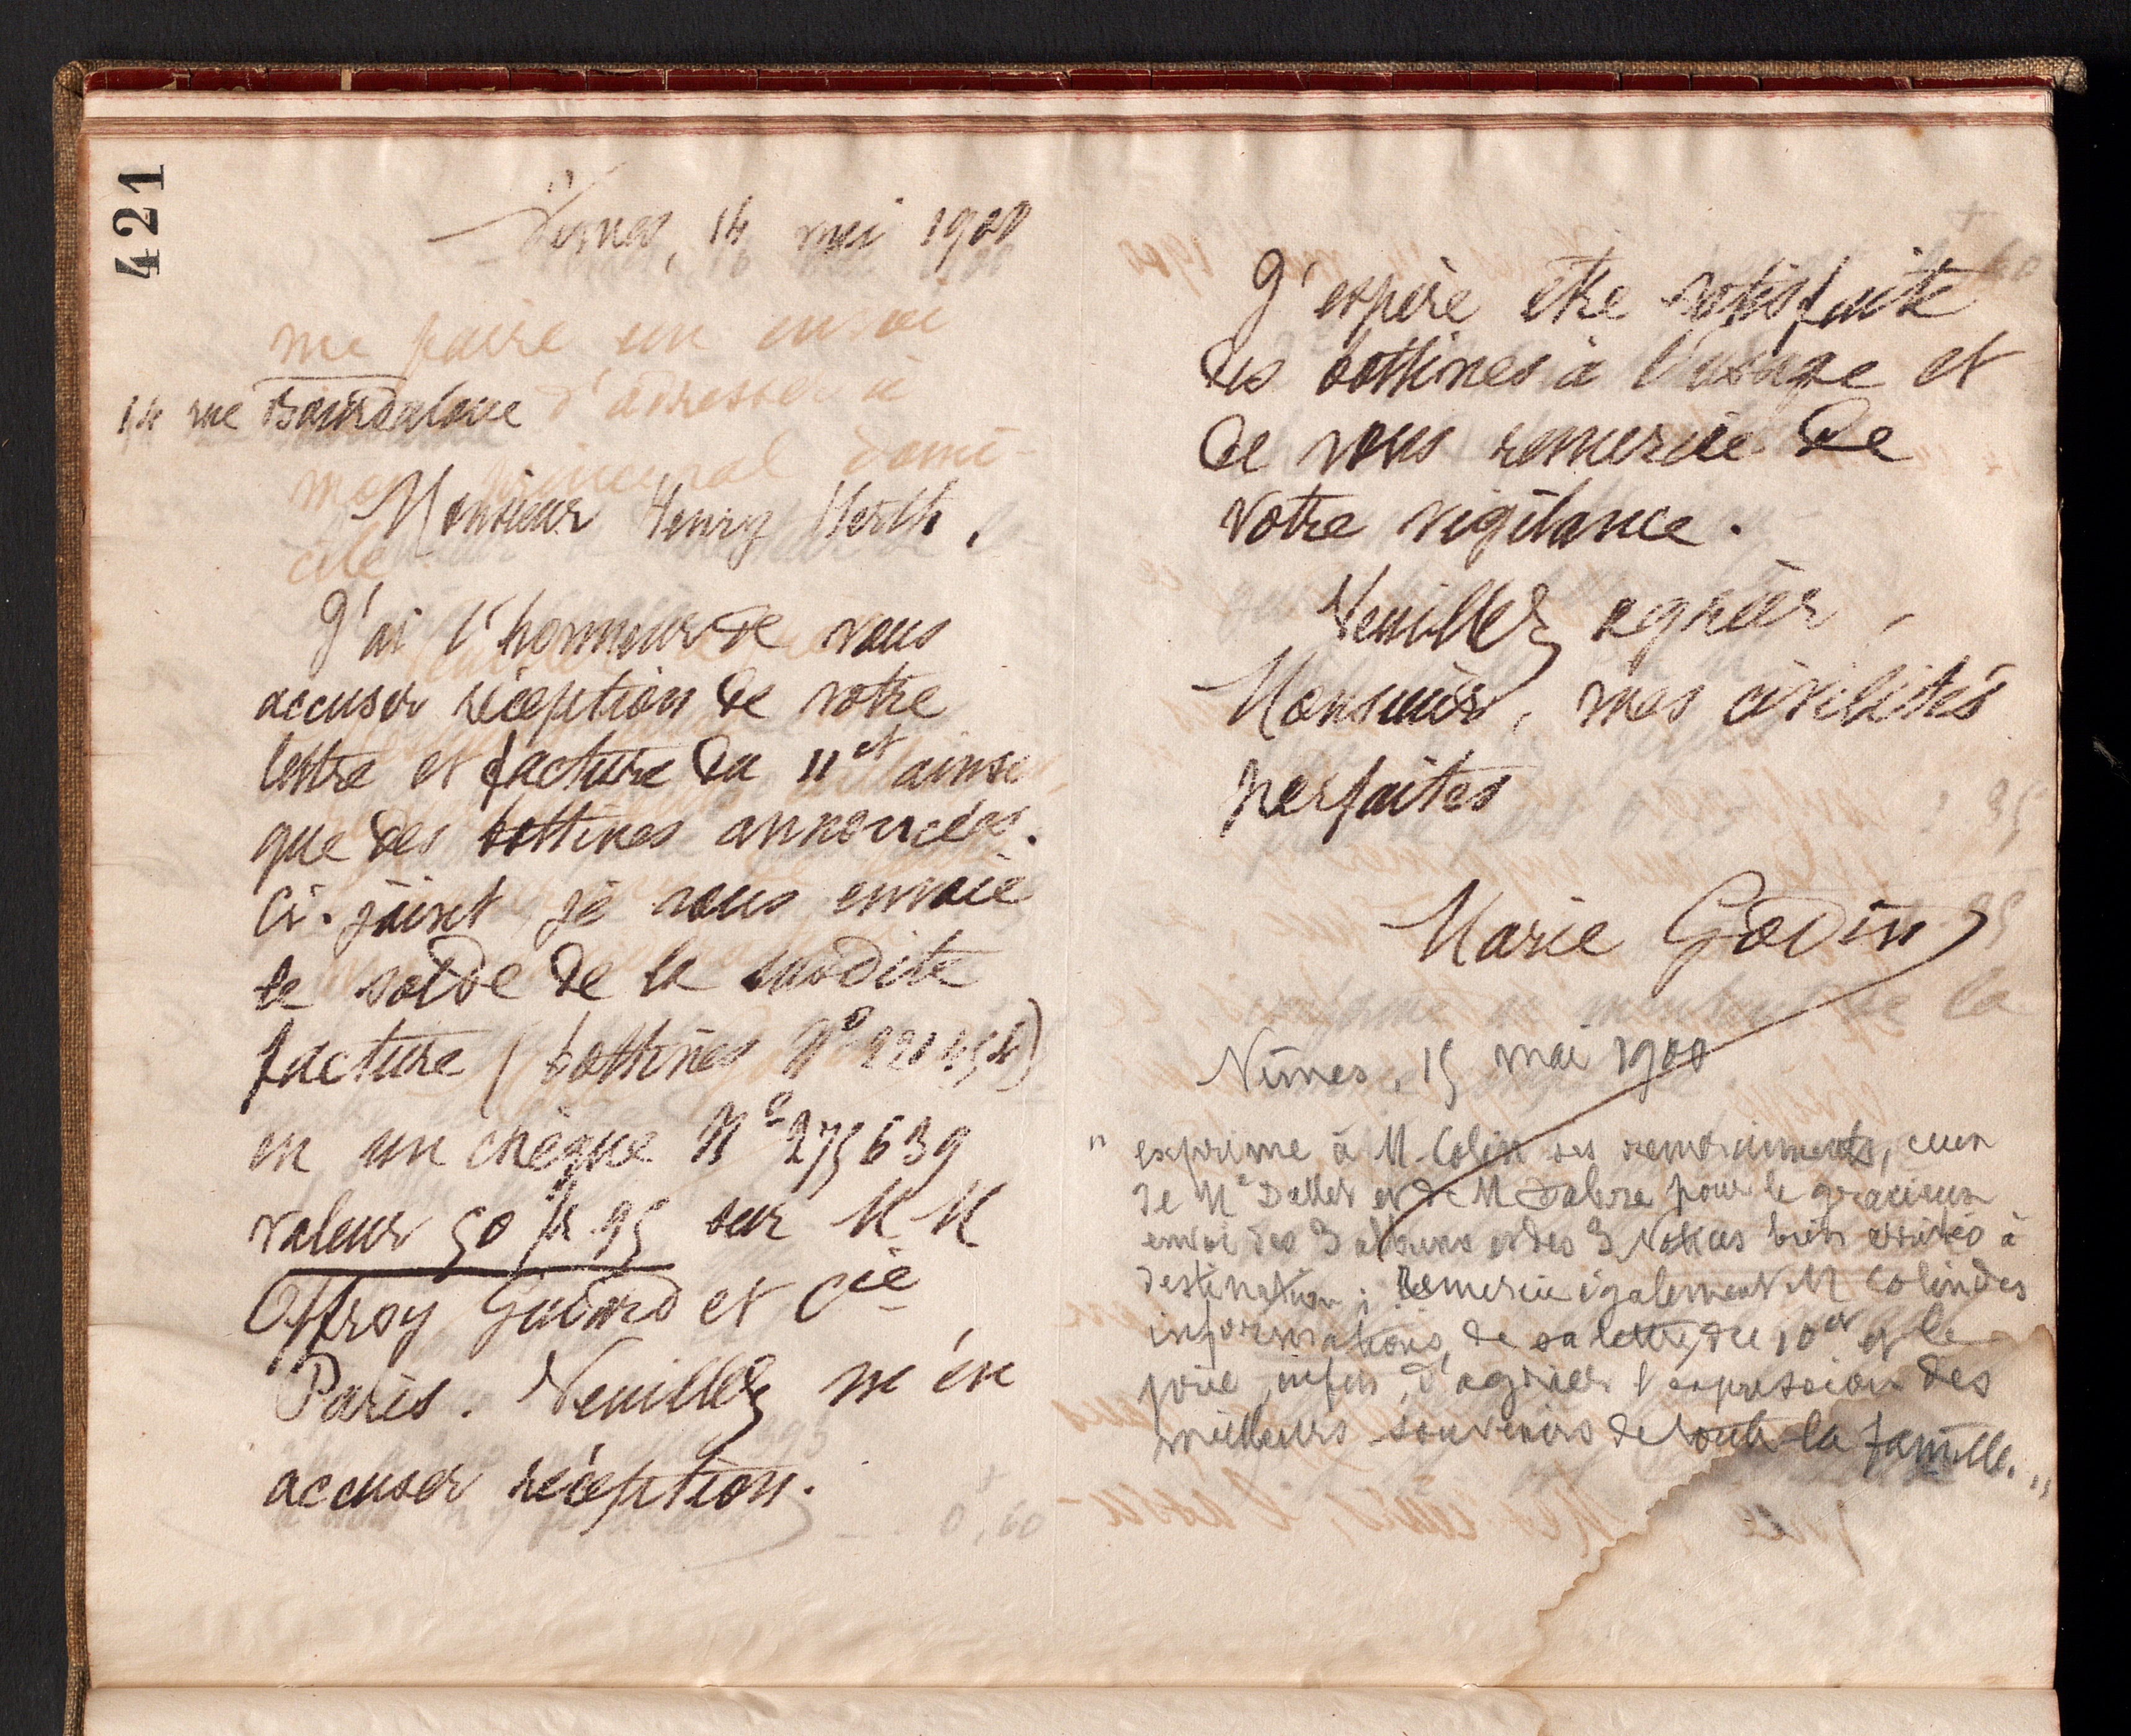 421
Nîmes, 14 mai 1900
14 rue Bourdaloue
Monsieur Henry Herth,
J'ai l'honneur de vous
accuser réception de votre
lettre et facture du 11 ct ainsi
que des bottines annoncées.
Ci-joint je vous envoie
le solde de la susdite
facture (bottines N°
en un chèque N° 275639
valeur 50 fr 95 sur MM
Offroy Guiard et Cie
Paris. Veuillez m'en
accuser réception.
J'espère être satisfaite
des bottines à l'usage et
de vous remercie de
votre vigilance.
Veuillez agréer,
Monsieur, mes civilités
parfaites
Marie Godin
Nîmes, 15 mai 1900
" exprime à M. Colin ses remerciements, ceux
de Me Dallet et de M Fabre pour le gracieux
envoi des 3 albums et des 3 Notices bien arrivés à
destination ; Remercie également M Colin des
informations de sa lettre du 10 ct et le
prie, enfin, d'agréer l'expression des
meilleurs souvenirs de toute la famille. "